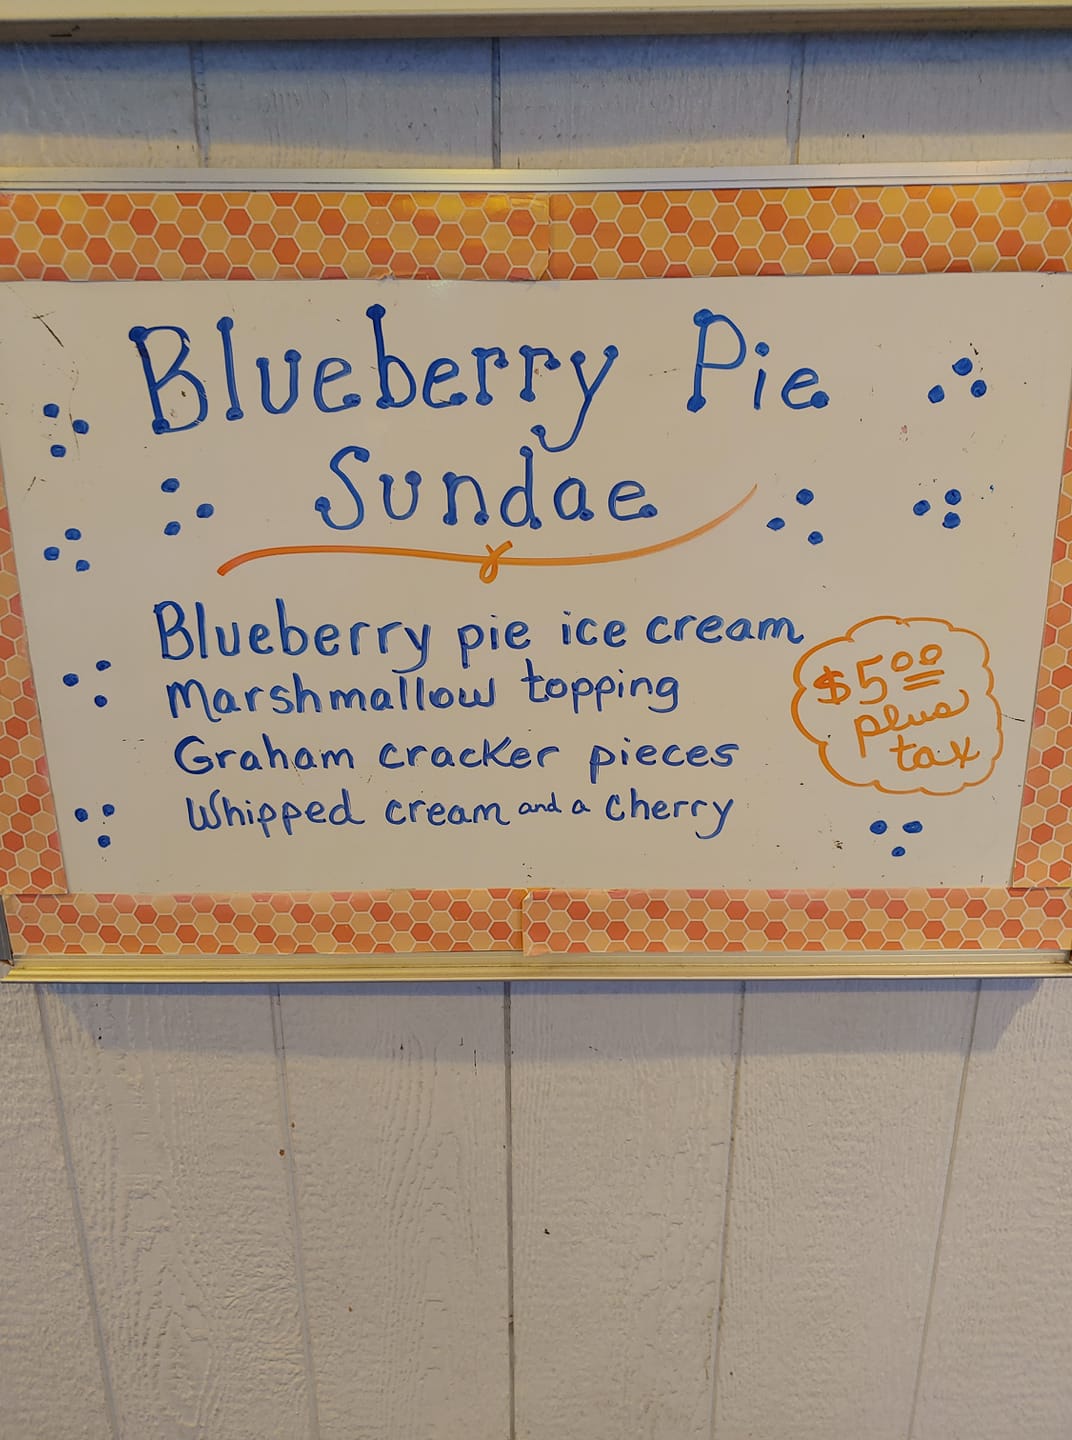 Blueberry Pie
Sundae
Blueberry pie ice cream
Marshmallow topping
Graham cracker pieces
Whipped cream and a cherry
$5.00
plus
tax